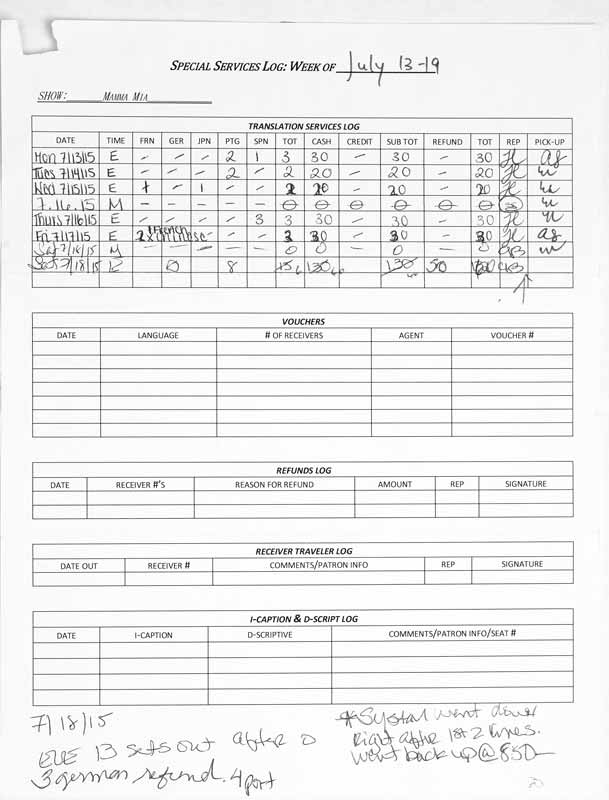 SPECIAL SERVICES LOG: WEEK OF July 13-19
SHOW: MAMMA MIA
TRANSLATION SERVICES LOG
DATE TIME FRN GER JPN PTG SPN TOT CASH CREDIT SUB TOT REFUND TOT REP PICK-UP
Mon 7/13/15 E - - - 2 1 3 30 - 30 - 30
Tues 7/14/15 E - - - 2 - 2 20 - 20 - 20
Wed 7/15/15 E - 1 - - 2 20 - 20 - 20
7.16.15 M - - - - - 0 0 0 0 0 0
Thurs 7/16/15 E - - - - 3 3 30 - 30 - 30
Fri 7/17/15 E French - - 3 30 - 30 - 30
Sat 7/18/15 M - - - - - 0 0 0 0
Sat 7/18/15 E 8 130 130 50
VOUCHERS
DATE LANGUAGE # OF RECEIVERS AGENT VOUCHER #
REFUNDS LOG
DATE RECEIVER #'S REASON FOR REFUND AMOUNT REP SIGNATURE
RECEIVER TRAVELER LOG
DATE OUT RECEIVER # COMMENTS/PATRON INFO REP SIGNATURE
I-CAPTION & D-SCRIPT LOG
DATE I-CAPTION D-SCRIPTIVE COMMENTS/PATRON INFO/SEAT #
7/18/15
EVE 13 sets out after
3 german refund. 4 port
*System went down
right after 1st 2 lines.
went back up @ 850
20